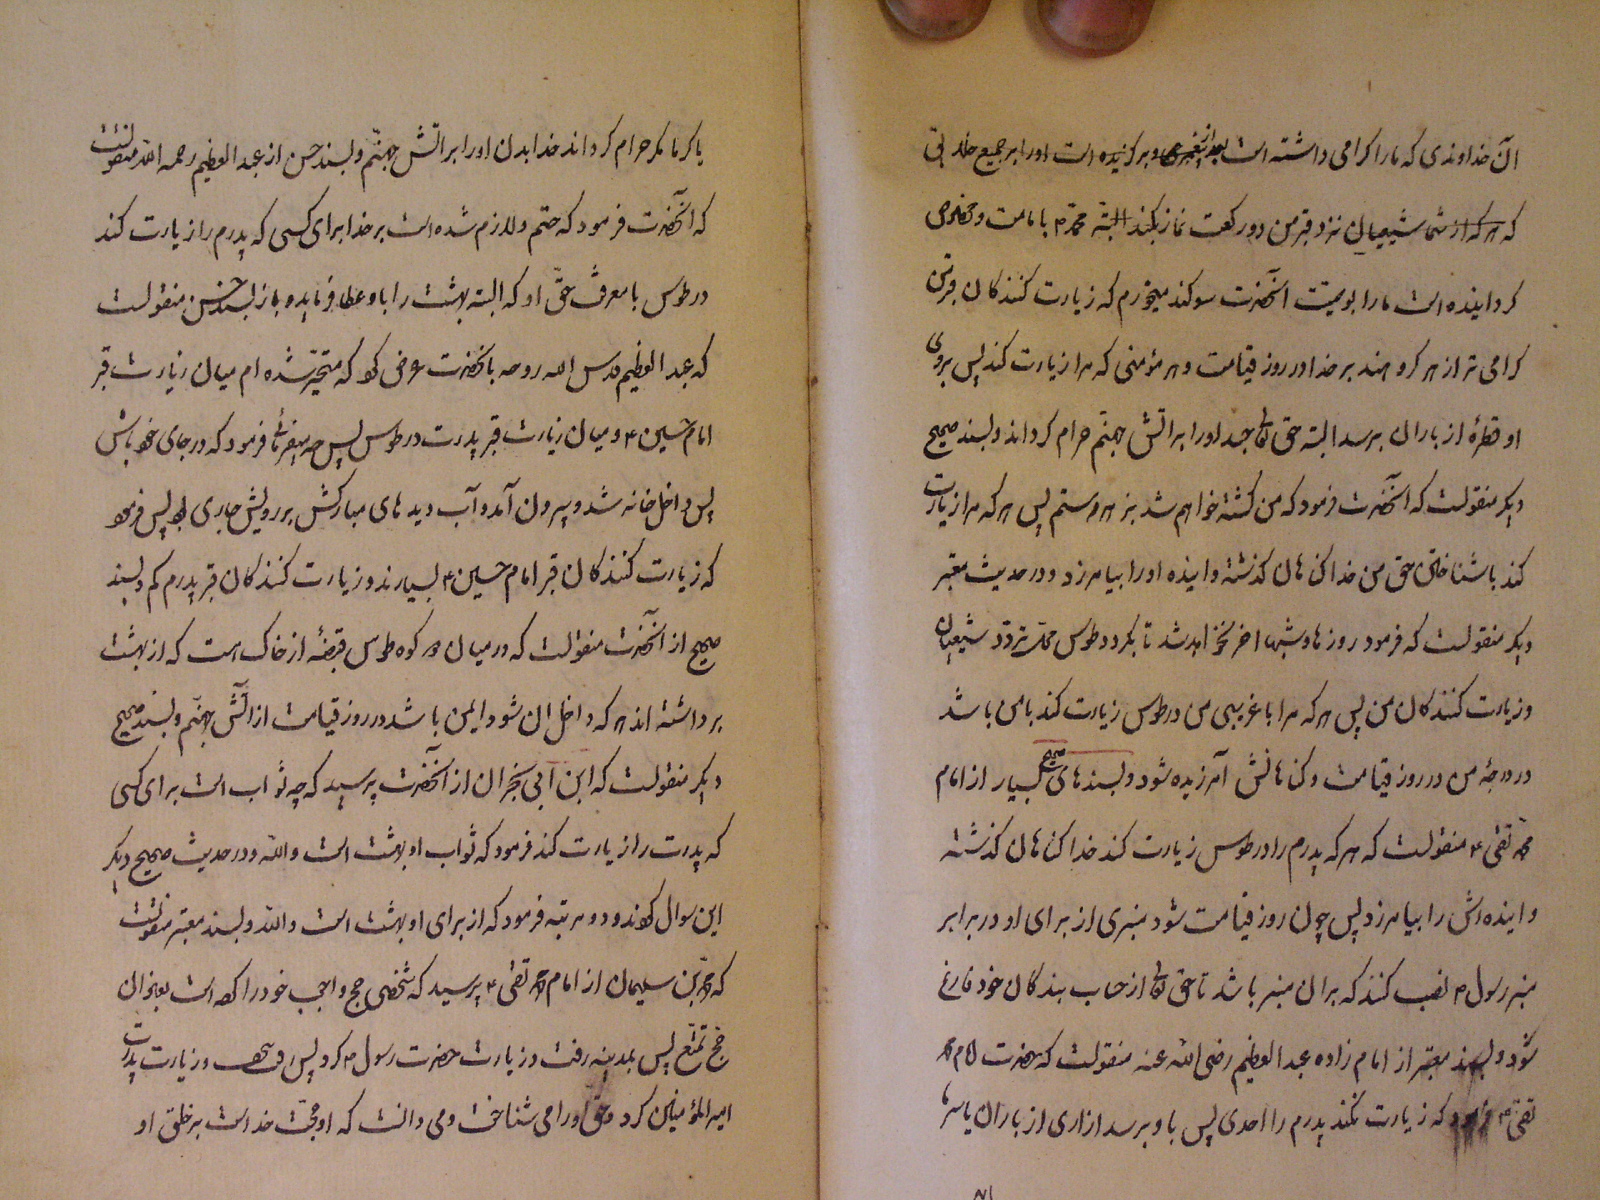 آن خداوندی که ما را گرامی داشته است بعد از پیغمبری و برگزیده است او را بر جمیع خلق
که هر که از شما شیعیان نزد قبر من دو رکعت نماز بکند البته محمد ۳ بامامت و مخصوص
گردانیده است ما را بوصیت آنحضرت سوگند میخورم که زیارت کنندگان قبر من
گرامی تر از هر گروهند بر خدا در روز قیامت و هر مؤمنی که مرا زیارت کند پس بروی
او قطرهٔ از باران برسد البته حق تعالی جسد او را بر آتش جهنم حرام گرداند و بسند صحیح
دیگر منقولست که آنحضرت فرمود که من کشته خواهم شد بزهر و ستم پس هر که مرا زیارت
کند با شناختن حق من خدا گناهان گذشته و آینده او را بیامرزد و در حدیث معتبر
دیگر منقولست که فرمود روزها و شبها آخر نخواهد شد تا بگردد طوس محل تردد شیعیان
و زیارت کنندگان من پس هر که مرا با غریبی من در طوس زیارت کند با من باشد
در درجهٔ من در روز قیامت و گناهانش آمرزیده شود و بسندهای صحیح بسیار از امام
محمد تقی ۴ منقولست که هر که پدرم را در طوس زیارت کند خدا گناهان گذشته
و آینده اش را بیامرزد پس چون روز قیامت شود منبری از برای او در برابر
منبر رسول ۳ نصب کنند که بر آن منبر باشد تا حق تعالی از حساب بندگان خود فارغ
شود و بسند معتبر از امام زاده عبد العظیم رضی الله عنه منقولست که حضرت امام محمد
تقی ۴ فرمود که زیارت نکند پدرم را احدی پس باو برسد آزاری از باران یا سرما
یا گرما مگر حرام گرداند خدا بدن او را بر آتش جهنم و بسند حسن از عبد العظیم رحمه الله منقولست
که آنحضرت فرمود که حتم و لازم شده است بر خدا برای کسی که پدرم را زیارت کند
در طوس با معرفت حق او که البته بهشت را باو عطا فرماید و باز بسند حسن منقولست
که عبد العظیم قدس الله روحه بآنحضرت عرض کرد که متحیر شده ام میان زیارت قبر
امام حسین ۴ و میان زیارت قبر پدرت در طوس پس چه میفرمائی فرمود که در جای خود باش
پس داخل خانه شد و بیرون آمد و آب دیدهای مبارکش بر رویش جاری بود پس فرمود
که زیارت کنندگان قبر امام حسین ۴ بسیارند و زیارت کنندگان قبر پدرم کم و بسند
صحیح از آنحضرت منقولست که در میان دو کوه طوس قبضهٔ از خاک است که از بهشت
برداشته اند هر که داخل آن شود ایمن باشد در روز قیامت از آتش جهنم و بسند صحیح
دیگر منقولست که ابن ابی نجران از آنحضرت پرسید که چه ثواب است برای کسی
که پدرت را زیارت کند فرمود که ثواب او بهشت است والله و در حدیث صحیح دیگر
این سوال کردند و دو مرتبه فرمود که از برای او بهشت است والله و بسند معتبر منقولست
که محمد بن سلیمان از امام محمد تقی ۴ پرسید که شخصی حج واجب خود را کرده است بعنوان
حج تمتع پس بمدینه رفت و زیارت حضرت رسول ۳ کرد پس و زیارت پدرت
امیر المؤمنین کرد و حق او را می شناخت و می دانست که او حجت خداست بر خلق او